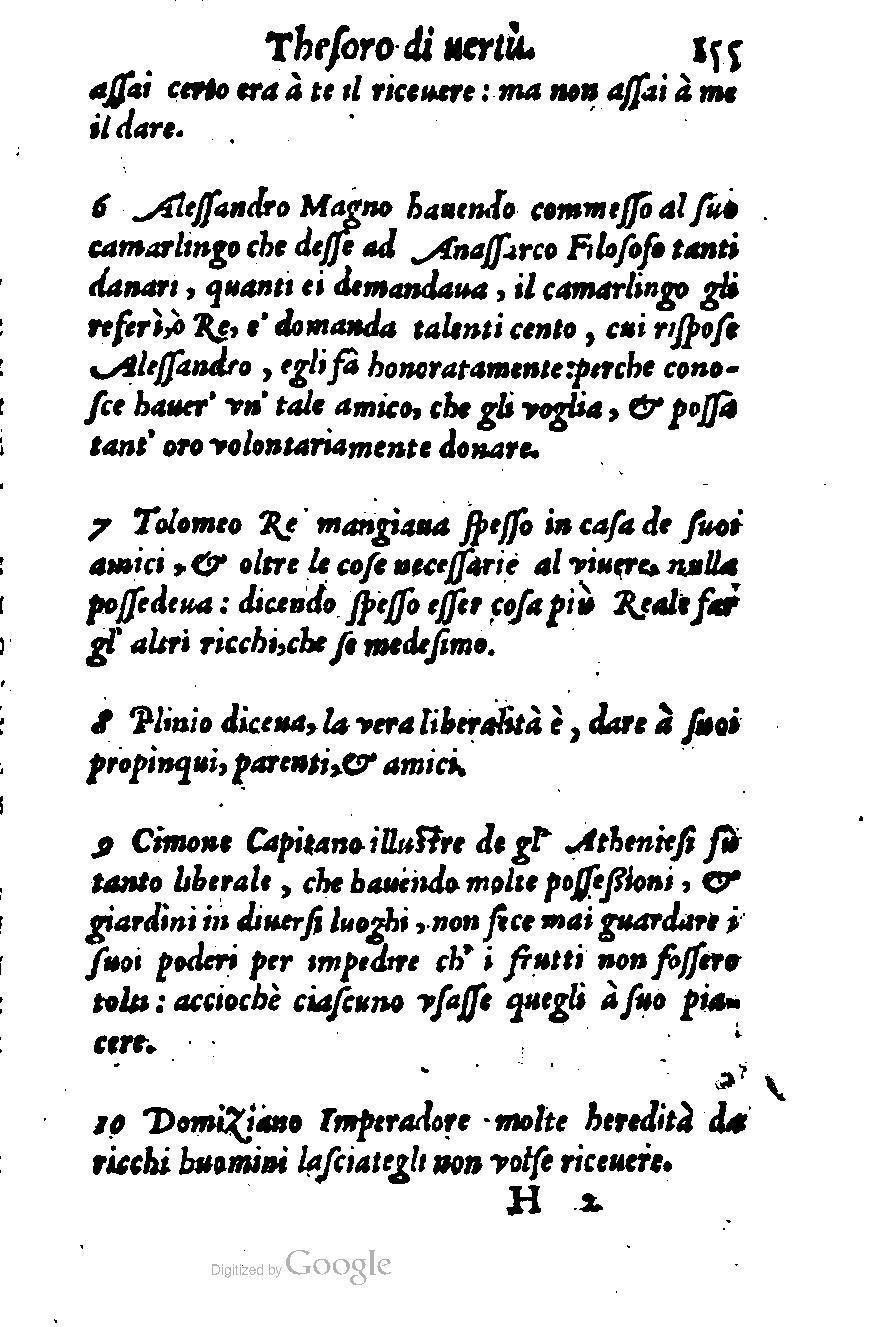 Theſoro di uertù. 155
aſſai certo era à te il riceuere : ma non aſſai à me
il dare.
6 Aleſſandro Magno hauendo commeſſo al ſuo
camarlingo che deſſe ad Anaſſarco Filoſofo tanti
danari , quanti ei demandaua , il camarlingo gli
referì,ò Re, e' domanda talenti cento , cui riſpoſe
Aleſſandro , egli fà honoratamente:perche cono-
ſce hauer' vn' tale amico, che gli voglia , & poſſa
tant' oro volontariamente donare.
7 Tolomeo Re mangiaua ſpeſſo in caſa de ſuoi
amici , & oltre le coſe neceſſarie al viuere. nulla
poſſedeua : dicendo ſpeſſo eſſer coſa più Reale far
gl' altri ricchi,che ſe medeſimo.
8 Plinio diceua, la vera liberalità è , dare à ſuoi
propinqui, parenti,& amici.
9 Cimone Capitano illuſtre de gl' Athenieſi fù
tanto liberale , che hauendo molte poſſeßioni , &
giardini in diuerſi luoghi , non fece mai guardare i
ſuoi poderi per impedire ch' i frutti non foſſero
tolti : acciochè ciaſcuno vſaſſe quegli à ſuo pia-
cere.
10 Domiziano Imperadore molte heredità da
ricchi huomini laſciategli non volſe riceuere.
H 2
Digitized by Google